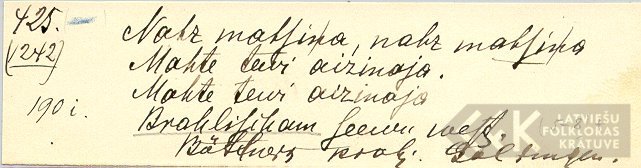 425.
(242)
190 i.
Nahz mahsiņa, nahz mahsiņa
Mahte tewi aizinaja.
Mahte tewi aizinaja
Brahlischam seewu west.
Bĕthers
LATVIEŠU
FOLKLORAS
KRĀTUVE